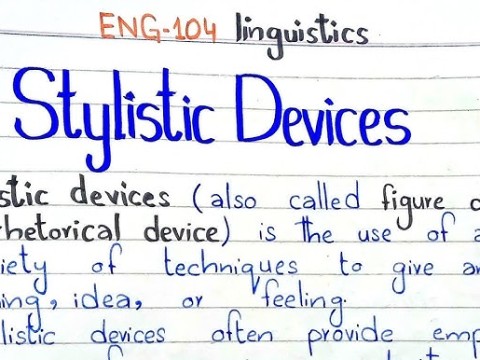 ENG-104 linguistics
Stylistic Devices
stic devices (also called figure o
rhetorical device) is the use of a
iety of techniques to give an
ing, idea, or feeling.
listic devices often provide emp